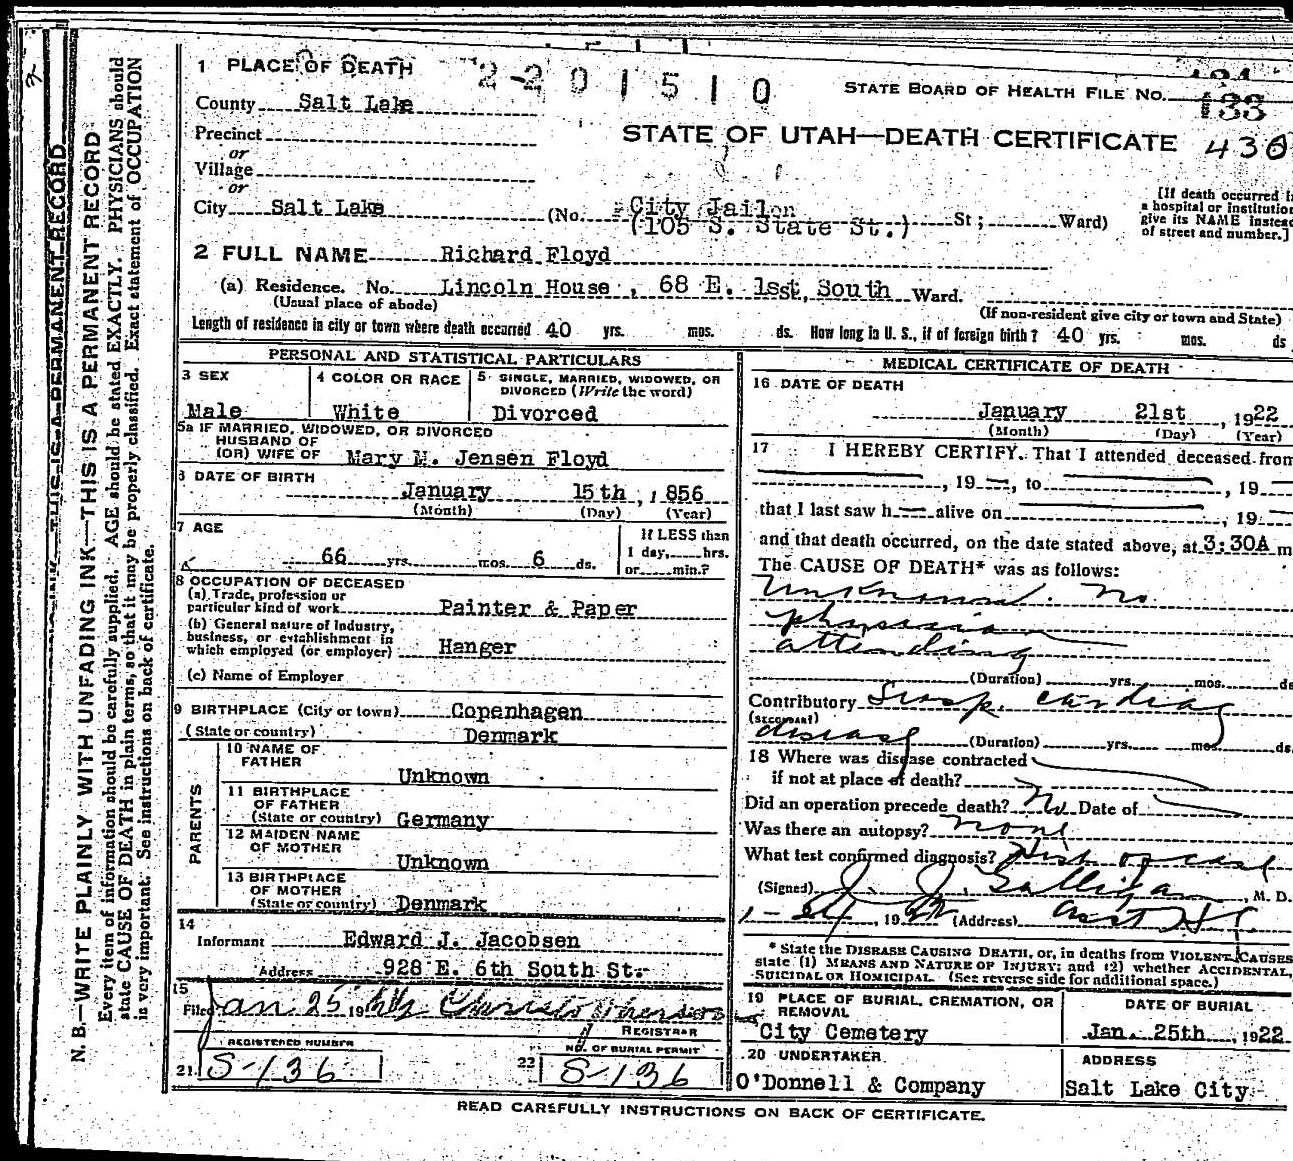 1 PLACE OF DEATH
2-201510
STATE BOARD OF HEALTH FILE NO.
133
County Salt Lake
STATE OF UTAH—DEATH CERTIFICATE
436
Precinct
or
Village
or
City Salt Lake (No. City Jail (105 S. State St.) St; Ward)
[If death occurred in
a hospital or institution
give its NAME instead
of street and number.]
2 FULL NAME Richard Floyd
(a) Residence. No. Lincoln House, 68 E. 1sst, South Ward.
(Usual place of abode)
(If non-resident give city or town and State)
Length of residence in city or town where death occurred 40 yrs. mos. ds. How long in U. S., if of foreign birth? 40 yrs. mos. ds
PERSONAL AND STATISTICAL PARTICULARS
3 SEX
Male
4 COLOR OR RACE
White
5 SINGLE, MARRIED, WIDOWED, OR
DIVORCED (Write the word)
Divorced
5a IF MARRIED, WIDOWED, OR DIVORCED
HUSBAND OF
(OR) WIFE OF Mary M. Jensen Floyd
6 DATE OF BIRTH
January 15th, 1856
(Month) (Day) (Year)
7 AGE
66 yrs. mos. 6 ds.
If LESS than
1 day, hrs.
or min.?
8 OCCUPATION OF DECEASED
(a) Trade, profession or
particular kind of work Painter & Paper
(b) General nature of Industry,
business, or establishment in
which employed (or employer) Hanger
(c) Name of Employer
9 BIRTHPLACE (City or town) Copenhagen
(State or country) Denmark
PARENTS
10 NAME OF
FATHER
Unknown
11 BIRTHPLACE
OF FATHER
(State or country) Germany
12 MAIDEN NAME
OF MOTHER
Unknown
13 BIRTHPLACE
OF MOTHER
(State or country) Denmark
14
Informant Edward J. Jacobsen
Address 928 E. 6th South St.
15
Filed Jan 25 19
REGISTRAR
REGISTERED NUMBER
21. S-136
NO. OF BURIAL PERMIT
22 S-136
MEDICAL CERTIFICATE OF DEATH
16 DATE OF DEATH
January 21st, 1922
(Month) (Day) (Year)
17 I HEREBY CERTIFY. That I attended deceased from
, 19 , to , 19
that I last saw h alive on , 19
and that death occurred, on the date stated above, at 3:30A m
The CAUSE OF DEATH* was as follows:
Unknown. No
physician
attending
(Duration) yrs. mos. ds
Contributory Susp. cardiac
(SECONDARY)
disease (Duration) yrs. mos. ds.
18 Where was disease contracted
if not at place of death?
Did an operation precede death? No Date of
Was there an autopsy? none
What test confirmed diagnosis? Hist of case
(Signed) J. J. Galligan, M. D.
1-24, 1922 (Address) Asst
* State the DISEASE CAUSING DEATH, or, in deaths from VIOLENT CAUSES
state (1) MEANS AND NATURE OF INJURY; and (2) whether ACCIDENTAL,
SUICIDAL OR HOMICIDAL. (See reverse side for additional space.)
19 PLACE OF BURIAL, CREMATION, OR
REMOVAL
City Cemetery
DATE OF BURIAL
Jan. 25th, 1922
20 UNDERTAKER
O'Donnell & Company
ADDRESS
Salt Lake City
READ CAREFULLY INSTRUCTIONS ON BACK OF CERTIFICATE.
THIS IS A PERMANENT RECORD
N. B.—WRITE PLAINLY WITH UNFADING INK—THIS IS A PERMANENT RECORD
Every item of information should be carefully supplied. AGE should be stated EXACTLY. PHYSICIANS should
state CAUSE OF DEATH in plain terms, so that it may be properly classified. Exact statement of OCCUPATION
is very important. See instructions on back of certificate.